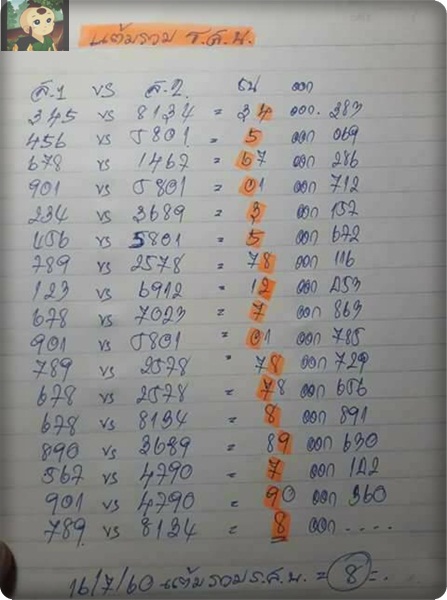 แต้มรวม ร.ส.น.
ส.1 vs ส.2 ชน ออก
345 vs 8134 = 34 ออก. 283
456 vs 5801 = 5 ออก 069
678 vs 1467 = 67 ออก 286
901 vs 5801 = 01 ออก 712
234 vs 3689 = 3 ออก 157
456 vs 5801 = 5 ออก 672
789 vs 2578 = 78 ออก 116
123 vs 6912 = 12 ออก 253
678 vs 7023 = 7 ออก 863
901 vs 5801 = 01 ออก 785
789 vs 2578 = 78 ออก 729
678 vs 2578 = 78 ออก 656
678 vs 8134 = 8 ออก 891
890 vs 3689 = 89 ออก 630
567 vs 4790 = 7 ออก 142
901 vs 4790 = 90 ออก 360
789 vs 8134 = 8 ออก ....
16/7/60 แต้มรวม ร.ส.น. = 8 = ..